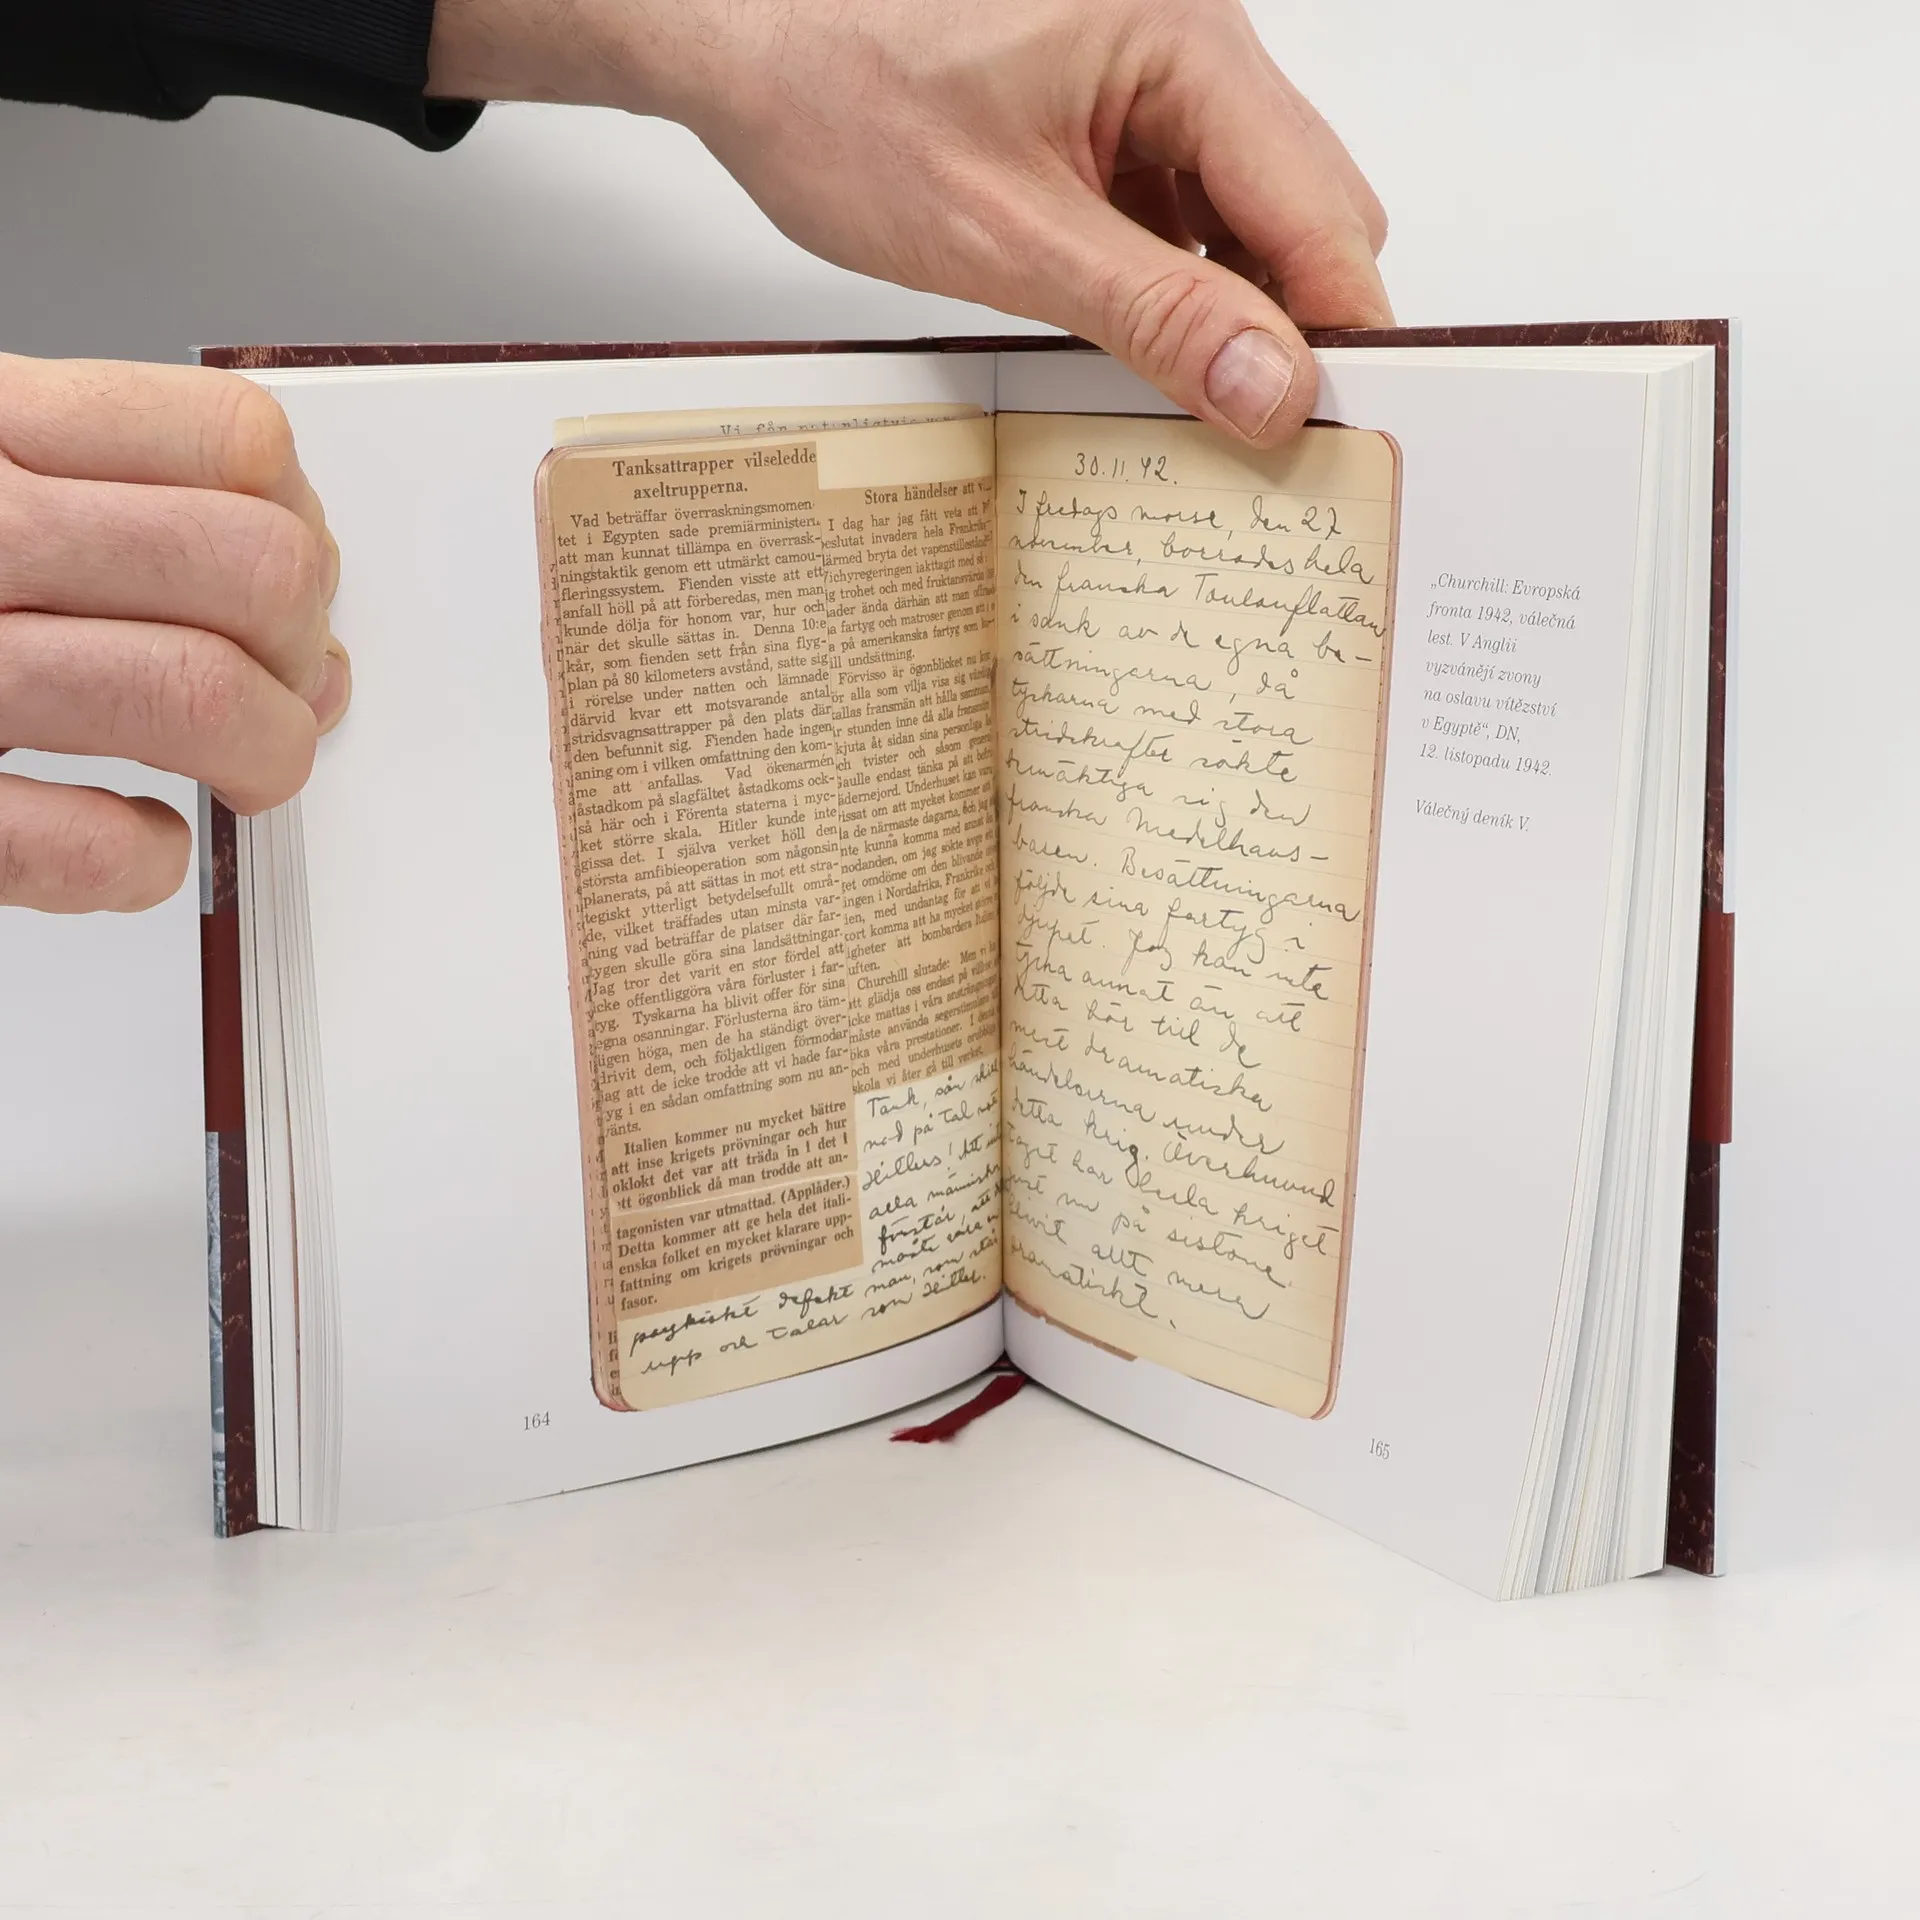 Vi får naturligtvis
Tanksattrapper vilseledde
axeltrupperna.
Vad beträffar överraskningsmomen-
tet i Egypten sade premiärministern
att man kunnat tillämpa en överrask-
ningstaktik genom ett utmärkt camou-
fleringssystem. Fienden visste att ett
anfall höll på att förberedas, men man
kunde dölja för honom var, hur och
när det skulle sättas in. Denna 10:e
kår, som fienden sett från sina flyg-
plan på 80 kilometers avstånd, satte sig
i rörelse under natten och lämnade
därvid kvar ett motsvarande antal
stridsvagnsattrapper på den plats där
den befunnit sig. Fienden hade ingen
aning om i vilken omfattning den kom-
me att anfallas. Vad ökenarmén
åstadkom på slagfältet åstadkoms ock-
så här och i Förenta staterna i myc-
ket större skala. Hitler kunde inte
gissa det. I själva verket höll den
största amfibieoperation som någonsin
planerats, på att sättas in mot ett stra-
tegiskt ytterligt betydelsefullt områ-
de, vilket träffades utan minsta var-
ning vad beträffar de platser där far-
tygen skulle göra sina landsättningar.
Jag tror det varit en stor fördel att
icke offentliggöra våra förluster i far-
tyg. Tyskarna ha blivit offer för sina
egna osanningar. Förlusterna äro täm-
ligen höga, men de ha ständigt över-
drivit dem, och följaktligen förmodar
jag att de icke trodde att vi hade far-
tyg i en sådan omfattning som nu an-
vänts.
Italien kommer nu mycket bättre
att inse krigets prövningar och hur
oklokt det var att träda in i det i
ett ögonblick då man trodde att an-
tagonisten var utmattad. (Applåder.)
Detta kommer att ge hela det itali-
enska folket en mycket klarare upp-
fattning om krigets prövningar och
fasor.
Stora händelser att
I dag har jag fått veta att
beslutat invadera hela Frankrike
därmed bryta det vapenstillestånd
Vichyregeringen iakttagit med så
trohet och med fruktansvärda
ända därhän att man offrade
fartyg och matroser genom att
på amerikanska fartyg som
till undsättning.
Förvisso är ögonblicket nu
för alla som vilja visa sig
fransmän att hålla samman,
stunden inne då alla fransmän
skjuta åt sidan sina personliga
och tvister och såsom general
Gaulle endast tänka på att
fädernejord. Underhuset kan vara
om att mycket kommer att
de närmaste dagarna, och jag
inte kunna komma med annat
om jag sökte avge ett
omdöme om den blivande
i Nordafrika, Frankrike och
med undantag för att vi
komma att ha mycket större
att bombardera Italien
luften.
Churchill slutade: Men vi ha
att glädja oss endast på villkor
icke mattas i våra ansträngningar
måste använda segerstimulansen
öka våra prestationer. I denna
och med underhusets orubbliga
skola vi åter gå till verket.
Tänk, sån skill
nad på tal mot
Hitlers! Att inte
alla människor
förstår, att
måste vara en
psykiskt defekt man, som står
upp och talar som Hitler.
30.11.42.
I fredags morse, den 27
november, borrades hela
den franska Toulonflottan
i sank av de egna be-
sättningarna, då
tyskarna med stora
stridskrafter sökte
bemäktiga sig den
franska Medelhavs-
basen. Besättningarna
följde sina fartyg i
djupet. Jag kan inte
tycka annat än att
detta hör till de
mest dramatiska
händelserna under
detta krig. Överhuvud
taget har hela kriget
just nu på sistone
blivit allt mera
dramatiskt.
„Churchill: Evropská
fronta 1942, válečná
lest. V Anglii
vyzvánějí zvony
na oslavu vítězství
v Egyptě“, DN,
12. listopadu 1942.
Válečný deník V.
164
165